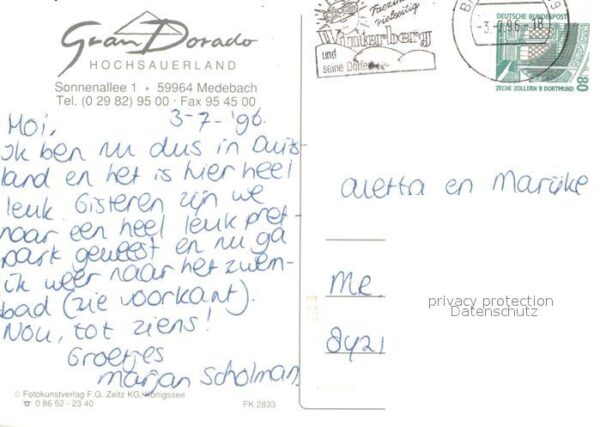 Gran Dorado
HOCHSAUERLAND
Sonnenallee 1 • 59964 Medebach
Tel. (0 29 82) 95 00 · Fax 95 45 00
Moi, 3-7-'96.
Ik ben nu dus in Duits
land en het is hier heel
leuk. Gisteren zijn we
naar een heel leuk pret
park geweest en nu ga
ik weer naar het zwem-
bad (zie voorkant).
Nou, tot ziens!
Groetjes
Marjan Scholman.
© Fotokunstverlag F.G. Zeitz KG, Königssee
☎ 0 86 52 - 23 40
FK 2833
Faszin
vielseitig
Winterberg
und
seine Dörfer
-3.-7.96-18
DEUTSCHE BUNDESPOST
80
ZECHE ZOLLERN II DORTMUND
Aletta en Marijke
Me.
8421
privacy protection
Datenschutz